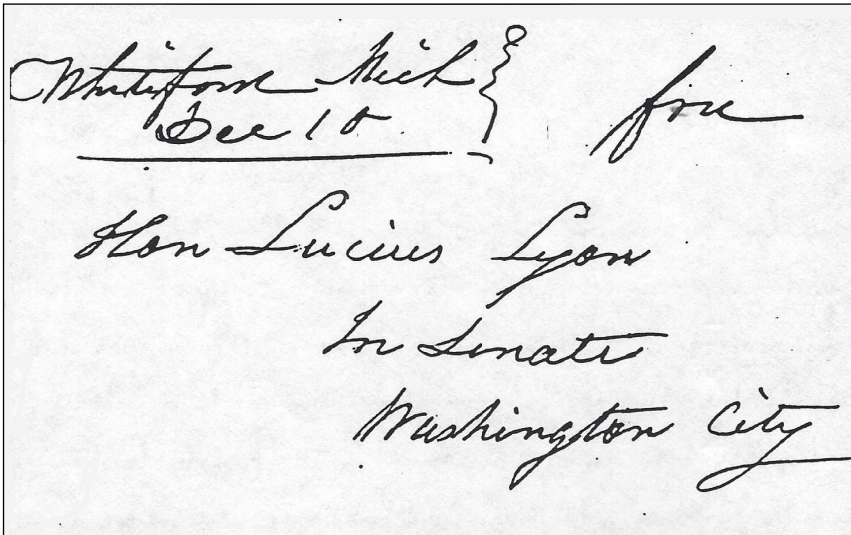 Whiteford Mich } free
Dec 10
Hon Lucius Lyon
In Senate
Washington City